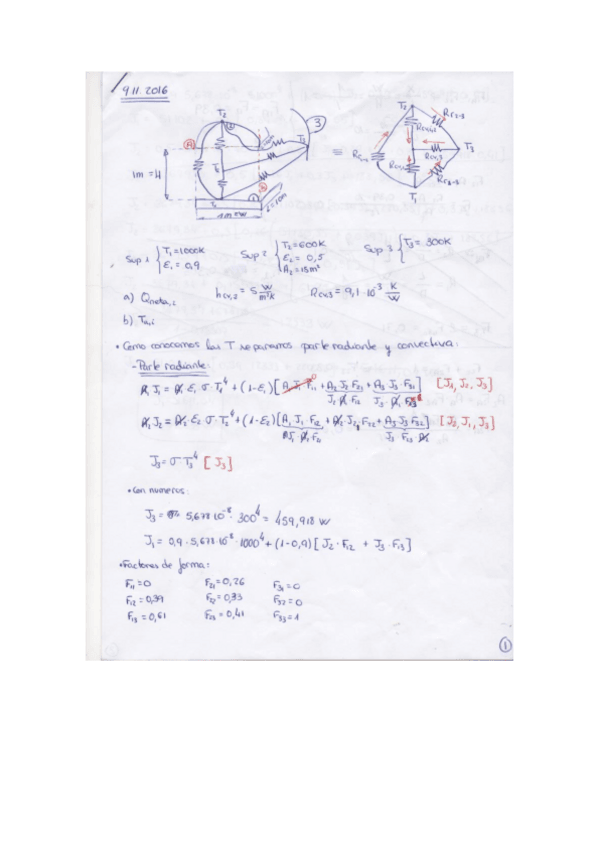 9.11.2016
T2
A
1m = H
T1
1m=W
3
≡
T2
T3
T1
Sup 1 { T1=1000K
E1= 0,9
Sup 2 { T2=600K
E2= 0,5
A2=15m²
Sup 3 { T3= 300K
a) Qneta,i
hcv,2 = 5 W/m²K
Rcv,3 = 9,1·10⁻³ K/W
b) Tu,i
• Como conocemos las T separamos parte radiante y convectiva:
- Parte radiante:
A1 J1 = A1 E1 σ T1⁴ + (1-E1) [A1 J1 F11 + A2 J2 F21 + A3 J3 F31] [J1, J2, J3]
J2 A1 F12 J3 A1 F13
A2 J2 = A2 E2 σ T2⁴ + (1-E2) [A1 J1 F12 + A2 J2 F22 + A3 J3 F32] [J2, J1, J3]
J3 = σ T3⁴ [J3]
• Con numeros:
J3 = 5,678·10⁻⁸ · 300⁴ = 459,918 W
J1 = 0,9 · 5,678·10⁻⁸ · 1000⁴ + (1-0,9) [J2 · F12 + J3 · F13]
• Factores de forma:
F11=0 F21=0,26 F31=0
F12=0,39 F22=0,33 F32=0
F13=0,61 F23=0,41 F33=1
1